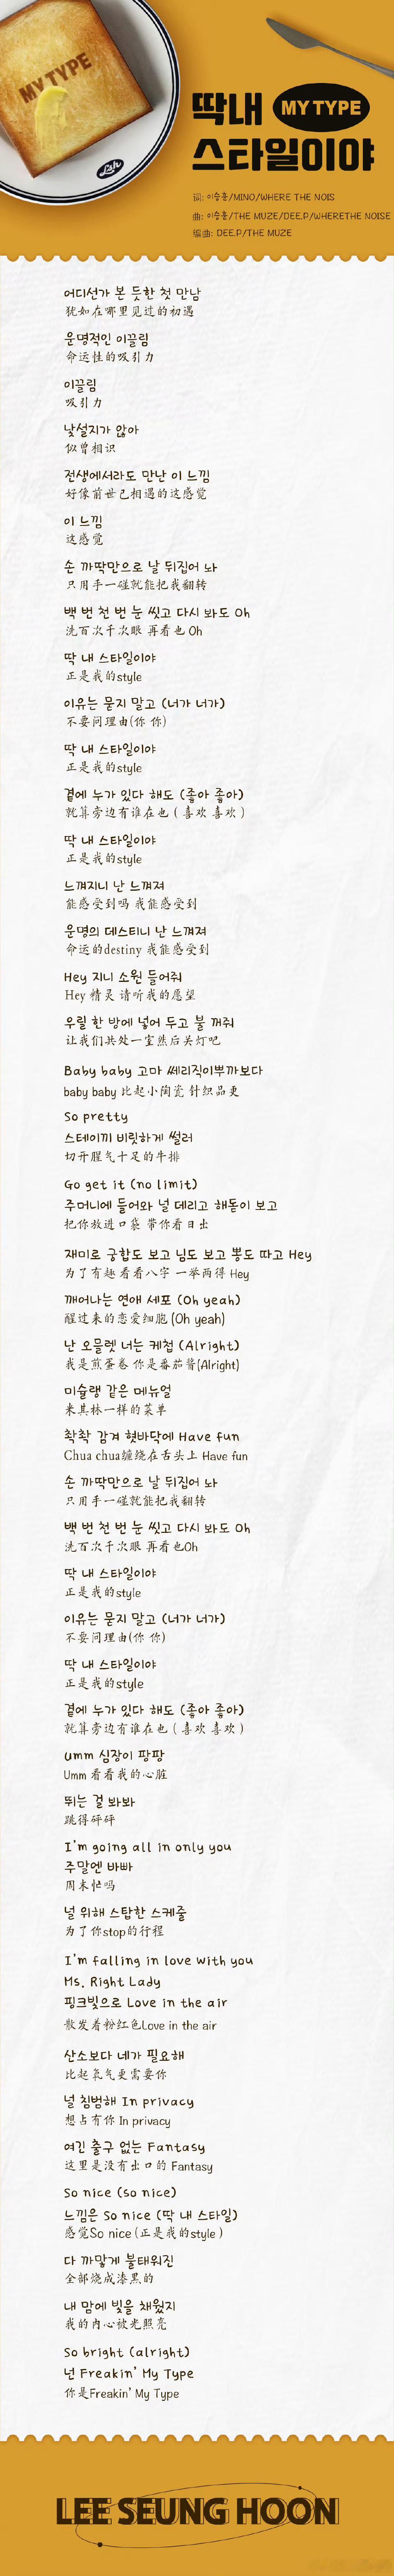 MY TYPE
딱내 MY TYPE
스타일이야
词: 이승훈/MINO/WHERE THE NOIS
曲: 이승훈/THE MUZE/DEE.P/WHERETHE NOISE
编曲: DEE.P/THE MUZE
어디선가 본 듯한 첫 만남
犹如在哪里见过的初遇
운명적인 이끌림
命运性的吸引力
이끌림
吸引力
낯설지가 않아
似曾相识
전생에서라도 만난 이 느낌
好像前世已相遇的这感觉
이 느낌
这感觉
손 까딱만으로 날 뒤집어 놔
只用手一碰就能把我翻转
백 번 천 번 눈 씻고 다시 봐도 Oh
洗百次千次眼 再看也 Oh
딱 내 스타일이야
正是我的style
이유는 묻지 말고 (너가 너가)
不要问理由(你 你)
딱 내 스타일이야
正是我的style
곁에 누가 있다 해도 (좋아 좋아)
就算旁边有谁在也 ( 喜欢 喜欢 )
딱 내 스타일이야
正是我的style
느껴지니 난 느껴져
能感受到吗 我能感受到
운명의 데스티니 난 느껴져
命运的destiny 我能感受到
Hey 지니 소원 들어줘
Hey 精灵 请听我的愿望
우릴 한 방에 넣어 두고 불 꺼줘
让我们共处一室然后关灯吧
Baby baby 고마 쎄리직이뿌까보다
baby baby 比起小陶瓷 针织品更
So pretty
스테이끼 비릿하게 썰러
切开腥气十足的牛排
Go get it (no limit)
주머니에 들어와 널 데리고 해돋이 보고
把你放进口袋 带你看日出
재미로 궁합도 보고 님도 보고 뽕도 따고 Hey
为了有趣 看看八字 一举两得 Hey
깨어나는 연애 세포 (Oh yeah)
醒过来的恋爱细胞 (Oh yeah)
난 오믈렛 너는 케첩 (Alright)
我是煎蛋卷 你是番茄酱(Alright)
미슐랭 같은 메뉴얼
米其林一样的菜单
촥촥 감겨 혓바닥에 Have fun
Chua chua缠绕在舌头上 Have fun
손 까딱만으로 날 뒤집어 놔
只用手一碰就能把我翻转
백 번 천 번 눈 씻고 다시 봐도 Oh
洗百次千次眼 再看也Oh
딱 내 스타일이야
正是我的style
이유는 묻지 말고 (너가 너가)
不要问理由(你 你)
딱 내 스타일이야
正是我的style
곁에 누가 있다 해도 (좋아 좋아)
就算旁边有谁在也 ( 喜欢 喜欢 )
Umm 심장이 팡팡
Umm 看看我的心脏
뛰는 걸 봐봐
跳得砰砰
I'm going all in only you
주말엔 바빠
周末忙吗
널 위해 스탑한 스케줄
为了你stop的行程
I'm falling in love with you
Ms. Right Lady
핑크빛으로 Love in the air
散发着粉红色Love in the air
산소보다 네가 필요해
比起氧气更需要你
널 침범해 In privacy
想占有你 In privacy
여긴 출구 없는 Fantasy
这里是没有出口的 Fantasy
So nice (so nice)
느낌은 So nice (딱 내 스타일)
感觉So nice (正是我的style )
다 까맣게 불태워진
全部烧成漆黑的
내 맘에 빛을 채웠지
我的内心被光照亮
So bright (alright)
넌 Freakin' My Type
你是Freakin' My Type
LEE SEUNG HOON